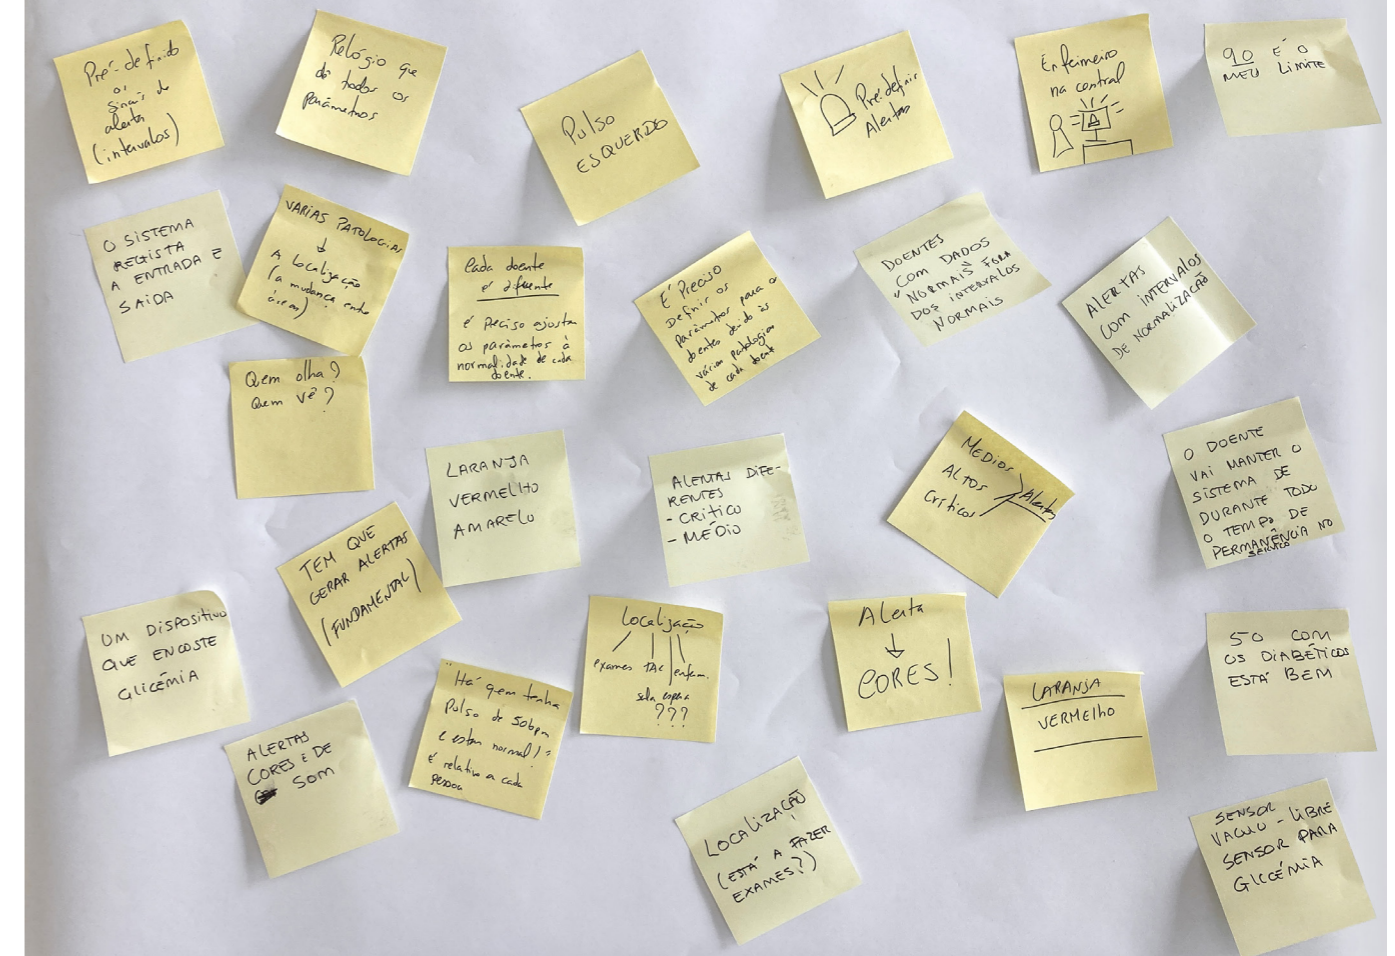 Pré-definido
os
sinais de
alerta
(intervalos)
Relógio que
dá todos os
parâmetros
Pulso
ESQUERDO
Pré-definir
Alertas
Enfermeiro
na central
90 É O
MEU LIMITE
O SISTEMA
REGISTA
A ENTRADA E
SAÍDA
VÁRIAS PATOLOGIAS
A localização
(a mudança entre
áreas)
Cada doente
é diferente
é preciso ajustar
os parâmetros à
normalidade de cada
doente.
É Preciso
Definir os
Parâmetros para os
doentes devido às
várias patologias
de cada doente
DOENTES
COM DADOS
"NORMAIS" FORA
DOS INTERVALOS
NORMAIS
ALERTAS
COM INTERVALOS
DE NORMALIZAÇÃO
Quem olha?
Quem vê?
LARANJA
VERMELHO
AMARELO
ALERTAS DIFE-
RENTES
- CRÍTICO
- MÉDIO
MEDIOS
ALTOS
Críticos
Alertas
O DOENTE
VAI MANTER O
SISTEMA DE
DURANTE TODO
O TEMPO DE
PERMANÊNCIA NO
SERVIÇO
TEM QUE
GERAR ALERTAS
(FUNDAMENTAL)
UM DISPOSITIVO
QUE ENCOSTE
GLICÉMIA
Localização
exames TAC enferm.
sala espera
???
Alerta
CORES!
50 COM
OS DIABÉTICOS
ESTÁ BEM
"Há quem tenha
Pulso de 50bpm
e estar normal!"
É relativo a cada
pessoa
LARANJA
VERMELHO
ALERTAS
CORES E DE
SOM
LOCALIZAÇÃO
(ESTÁ A FAZER
EXAMES?)
SENSOR
VACUO - LIBRE
SENSOR PARA
GLICÉMIA